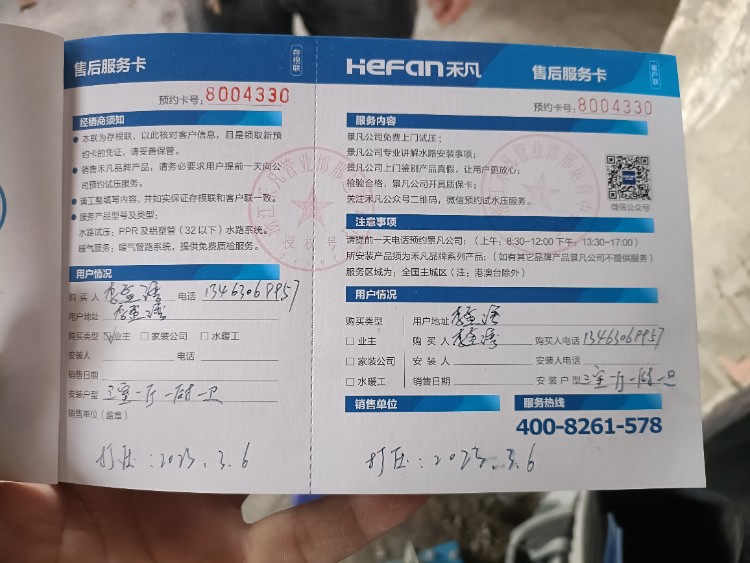 售后服务卡
存根联
预约卡号: 8004330
经销商须知
● 本联为存根联，以此核对客户信息，且是领取新预
约卡的凭证，请妥善保管。
● 销售禾凡品牌产品，请务必要求用户提前一天向公
司预约试压服务。
● 请工整填写内容，并如实保证存根联和客户联一致。
● 服务产品型号及类型:
水路试压：PPR及铝塑管（32以下）水路系统。
暖气服务：暖气管路系统，提供免费质检服务。
用户情况
购买人 电话 13463069957
用户地址
购买类型 ☑业主 □家装公司 □水暖工
安装人 电话
销售日期
安装户型 三室一厅一厨一卫
销售单位（盖章）
打压：2023.3.6
HeFan禾凡
售后服务卡
客户联
预约卡号: 8004330
服务内容
景凡公司免费上门试压；
景凡公司专业讲解水路安装事项；
景凡公司上门鉴别产品真假，让用户更放心；
检验合格，景凡公司开具质保卡；
关注禾凡公众号二维码，微信预约试水压服务。
微信公众号
注意事项
请提前一天电话预约景凡公司；（上午：8:30-12:00 下午：13:30-17:00）
所安装产品须为禾凡品牌系列产品；（如有其它品牌产品景凡公司不提供服务）
服务区域为：全国主城区（注：港澳台除外）
用户情况
购买类型 用户地址
□业主 购买人 购买人电话 13463069957
□家装公司 安装人 安装人电话
□水暖工 销售日期 安装户型 三室一厅一厨一卫
销售单位
服务热线
400-8261-578
打压：2023.3.6